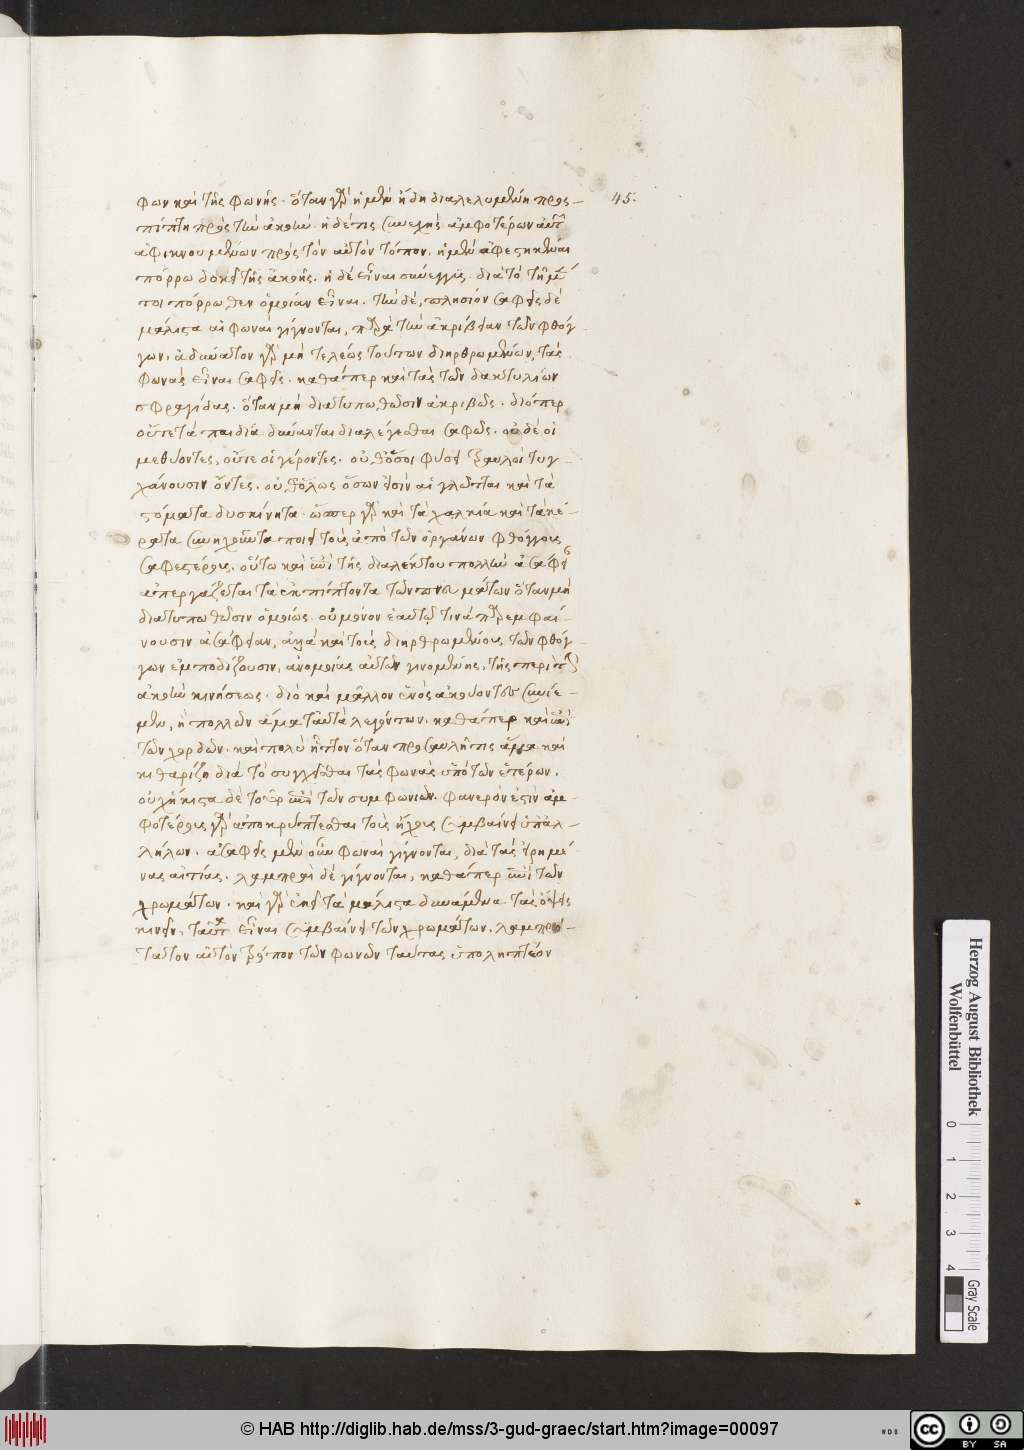 φων καὶ τῆς φωνῆς· ὅταν γὰρ ἡ μὲν ἤδη διαλελυμένη προσ- 45.
πίπτη πρὸς τὴν ἀκοὴν. ἡ δέ τις συνεχὴς ἀμφοτέρων αὐτῶν
ἀφικνουμένων πρὸς τὸν αὐτὸν τόπον. ἡ μὲν ἀφεστηκέναι
πόρρω δοκεῖ τῆς ἀκοῆς. ἡ δὲ εἶναι σύνεγγυς. διὰ τὸ τὴν μέν
τοι πόρρωθεν ὁμοίαν εἶναι. τὴν δὲ, πλησίον σαφεῖς δὲ
μάλιστα αἱ φωναὶ γίγνονται, παρὰ τὴν ἀκρίβειαν τῶν φθόγ-
γων. ἀδύνατον γὰρ μὴ τελέως τούτων διηρθρωμένων, τὰς
φωνὰς εἶναι σαφεῖς. καθάπερ καὶ τὰς τῶν δακτυλίων
σφραγίδας. ὅταν μὴ διατυπωθῶσιν ἀκριβῶς. διόπερ
οὔτε τὰ παιδία δύνανται διαλέγεσθαι σαφῶς. οὐδὲ οἱ
μεθύοντες, οὔτε οἱ γέροντες. οὐθ' ὅσοι φύσει τραυλοὶ τυγ-
χάνουσιν ὄντες. οὐθ' ὅλως ὅσων εἰσὶν αἱ γλῶτται καὶ τὰ
στόματα δυσκίνητα. ὥσπερ γὰρ καὶ τὰ χαλκία καὶ τὰ κέ-
ρατα συνηχοῦντα ποιεῖ τοὺς ἀπὸ τῶν ὀργάνων φθόγγους
σαφεστέρους. οὕτω καὶ ἐπὶ τῆς διαλέκτου πολλὴν ἀσάφει
ἀπεργάζεται τὰ ἐκπίπτοντα τῶν πνευμάτων ὅταν μὴ
διατυπωθῶσιν ὁμοίως. οὐ μόνον ἑαυτῶ τινά παρεμφαί-
νουσιν ἀσάφειαν, ἀλλὰ καὶ τοὺς διηρθρωμένους τῶν φθόγ-
γων ἐμποδίζουσιν, ἀνομοίας αὐτῶν γινομένης, τῆς περὶ τὴν
ἀκοὴν κινήσεως. διὸ καὶ μᾶλλον ἑνὸς ἀκούοντες συνίε-
μεν, ἢ πολλῶν ἅμα ταὐτὰ λεγόντων. καθάπερ καὶ ἐπὶ
τῶν χορδῶν. καὶ πολὺ ἧττον ὅταν προσαυλῆ τις ἅμα καὶ
κιθαρίζη διὰ τὸ συγχεῖσθαι τὰς φωνὰς ὑπὸ τῶν ἑτέρων.
οὐχ ἥκιστα δὲ τοῦτο ἐπὶ τῶν συμφωνιῶν. φανερόν ἐστὶν ἀμ-
φοτέρους γὰρ ἀποκρύπτεσθαι τοὺς ἤχους συμβαίνει ὑπ' ἀλ-
λήλων. ἀσαφεῖς μὲν οὖν φωναὶ γίγνονται, διὰ τὰς εἰρημέ-
νας αἰτίας. λαμπραὶ δὲ γίγνονται, καθάπερ ἐπὶ τῶν
χρωμάτων. καὶ γὰρ ἐκεῖ τὰ μάλιστα δυνάμενα τὰς ὄψεις
κινεῖν, ταῦτα εἶναι συμβαίνει τῶν χρωμάτων. λαμπρό-
τατον αὐτὸν τρόπον τῶν φωνῶν ταύτας ὑποληπτέον
Herzog August Bibliothek
Wolfenbüttel
0 1 2 3 4
Gray Scale
© HAB http://diglib.hab.de/mss/3-gud-graec/start.htm?image=00097
cc BY SA